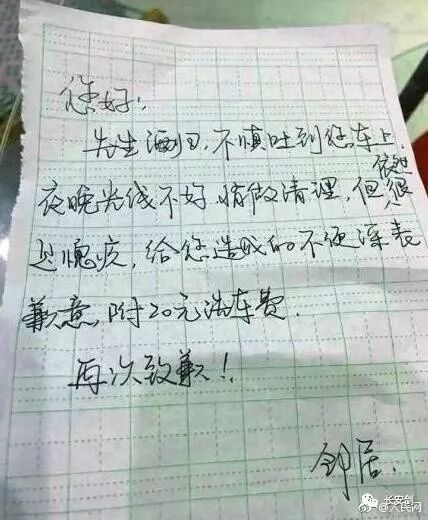 您好!
先生酒归,不慎吐到您车上.
夜晚光线不好 稍做清理,但依然很
是愧疚,给您造成的不便深表
歉意,附20元洗车费.
再次致歉!!
邻居.
长安剑
@人民网